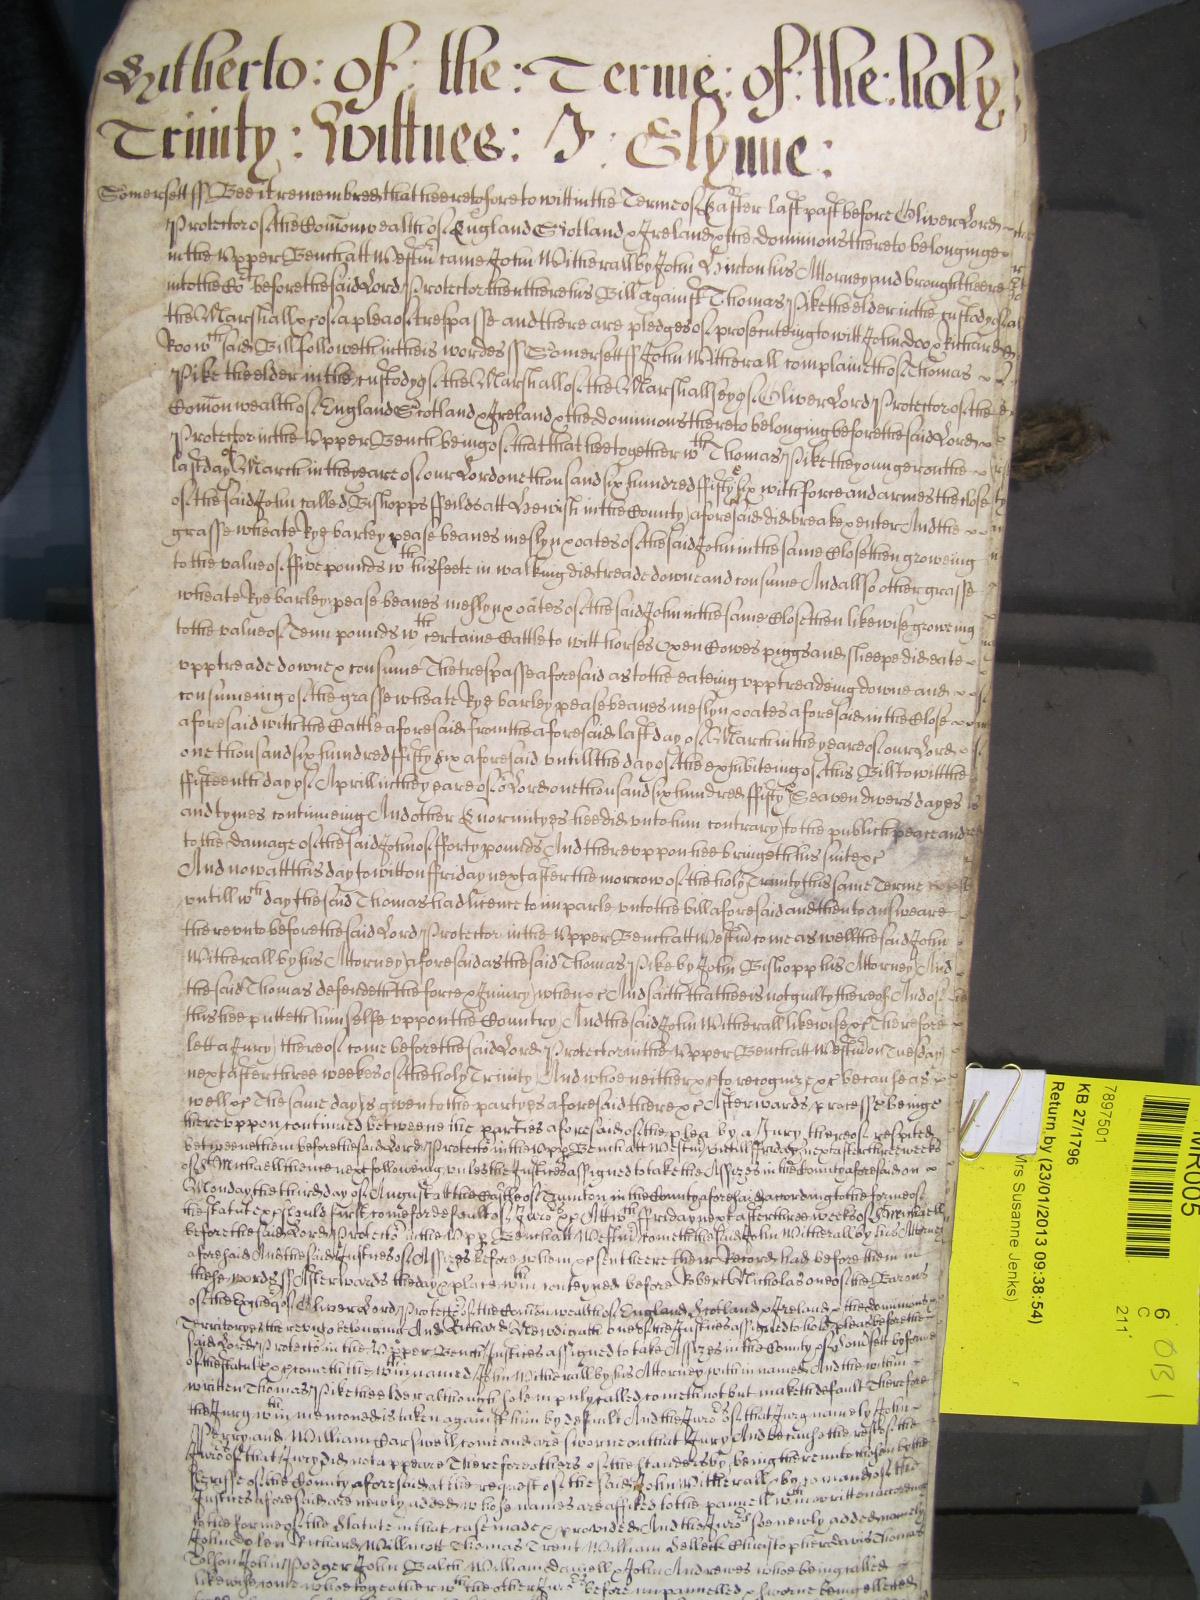 Hitherto : of : the : Terme : of : the : holy
Trinity : Wittnes : J : Glynne :
Somersett ss Bee it remembred that heretofore to witt in the Terme of Easter last past before Oliver Lord
Protector of the Com̄onwealth of England Scotland & Ireland & the dominions thereto belonginge
in the Upper Bench att Westm̄ came John Witherall by John Hirton his Attorney and brought here
into the Co^rt before the said Lord Protector then there his Bill against Thomas Pike the elder in the custody of
the Marshall &c of a plea of trespasse and there are pledges of prosecuteing to witt John doo & Richard
Roo w^ch said Bill followeth in theis wordes ss Somersett ss John Witherall complaineth of Thomas
Pike the elder in the custody of the Marshall of the Marshallsey of Oliver Lord Protector of the
Com̄onwealth of England Scotland & Ireland & the dominions thereto belonging before the said Lord
Protector in the Upper Bench being of that that hee together w^th Thomas Pike the younger on the
last day of March in the yeare of our Lord one thousand six hundred ffifty six with force and armes the close
of the said John called Bishopps ffeilds att Hewish in the County aforesaid did breake & enter And the
grasse wheate Rye barley pease beanes meslyn & oates of the said John in the same Close then groweing
to the value of ffive pounds w^th his feete in walking did treade downe and consume And allso other grasse
wheate Rye barley pease beanes meslyn & oates of the said John in the same Close then likewise groweing
to the value of Tenn pounds w^th certaine Cattle to witt horses Oxen Cowes piggs and sheepe did eate
upp treade downe & consume The trespasse aforesaid as to the eateing upp treadeing downe and
consumeing of the grasse wheate Rye barley pease beanes meslyn & oates aforesaid in the Close
aforesaid with the Cattle aforesaid from the aforesaid last day of March in the yeare of our Lord
one thousand six hundred ffifty six aforesaid untill the day of the exhibiteing of this Bill to witt the
ffifteenth day of Aprill in the yeare of o^r Lord one thousand six hundred ffifty Seaven divers dayes
and tymes continueing And other Enormityes hee did unto him contrary to the publick peace and
to the damage of the said John of fforty pounds And thereuppon hee bringeth his suite &c
And now att this day to witt on ffriday next after the morrow of the holy Trinity this same Terme
untill w^ch day the said Thomas had licence to imparle unto the bill aforesaid and then to answeare
thereunto before the said Lord Protector in the Upper Bench att Westm̄ come as well the said John
Witherall by his Attorney aforesaid as the said Thomas Pike by John Bishopp his Attorney And
the said Thomas defendeth the force & Injury when &c And saith that hee is not guilty thereof And of
this hee putteth himselfe uppon the Country And the said John Witherall likewise &c Therefore
lett a Jury thereof come before the said Lord Protector in the Upper Bench att Westm̄ on Tuesday
next after three weekes of the holy Trinity And who neither &c to recognize &c because as
well &c The same day is given to the partyes aforesaid there &c Afterwards processe beinge
thereuppon continued betweene the parties aforesaid of the plea by a Jury thereof respited
betweene them before the said Lord Protecto^r in the Upper Bench att Westm̄ untill ffriday next after three weekes
of S^t Michaell thence next following unles the Justices assigned to take the Assizes in the County aforesaid on
Monday the third day of August att the Castle of Taunton in the County aforesaid according to the forme of
the statute &c should first come for default of Juro^rs &c Att w^ch ffriday next after three weekes of S^t Michaell
before the said Lord Protecto^r in the Upp^er Bench att Westm̄ cometh the said John Witherall by his Attorney
aforesaid And the said Justices of Assizes before whom &c sent here their Record had before them in
these words ss Afterwards the day & place w^th in conteyned before Robert Nicholas one of the Barons
of the Excheq^r of Oliver Lord Protecto^r of the Com̄onwealth of England Scotland & Ireland & the dominions
Territoryes thereunto belonging And Richard Newdigate one of the Justices assigned to hold pleas before the
said Lord Protecto^r in the Upper Bench Justices assigned to take Assizes in the County of Somersett by forme
of the statute &c cometh the w^th in named John Witherall by his Attorney within named And the within
written Thomas Pike the elder although solempnly called cometh not but maketh default Therefore
the Jury w^th in menconed is taken against him by default And the Juro^rs of that Jury namely John
Perry and William Carswell come and are sworne on that Jury And because the rest of the
Juro^rs of that Jury did not appeare Therefore others of the standers by being thereunto chosen by the
Sheriffe of the County aforesaid at the request of the said John Witherall & by com̄and of the
Justices aforesaid are newly added whose names are affiled to the pannell w^th in written according
to the forme of the Statute in that case made & provided And the Juro^rs soe newly added namely
John Richard Willmott Thomas Trent William Selleck Christopher davis Thomas
Tolson John Podger John Balch William daniell & John Andrewes who being called
likewise come who together w^th the other Juro^rs before impannelled & sworne being elected
MR005
7897501
KB 27/1796
Return by (23/01/2013 09:38:54)
Mrs Susanne Jenks)
6
C
211
0131